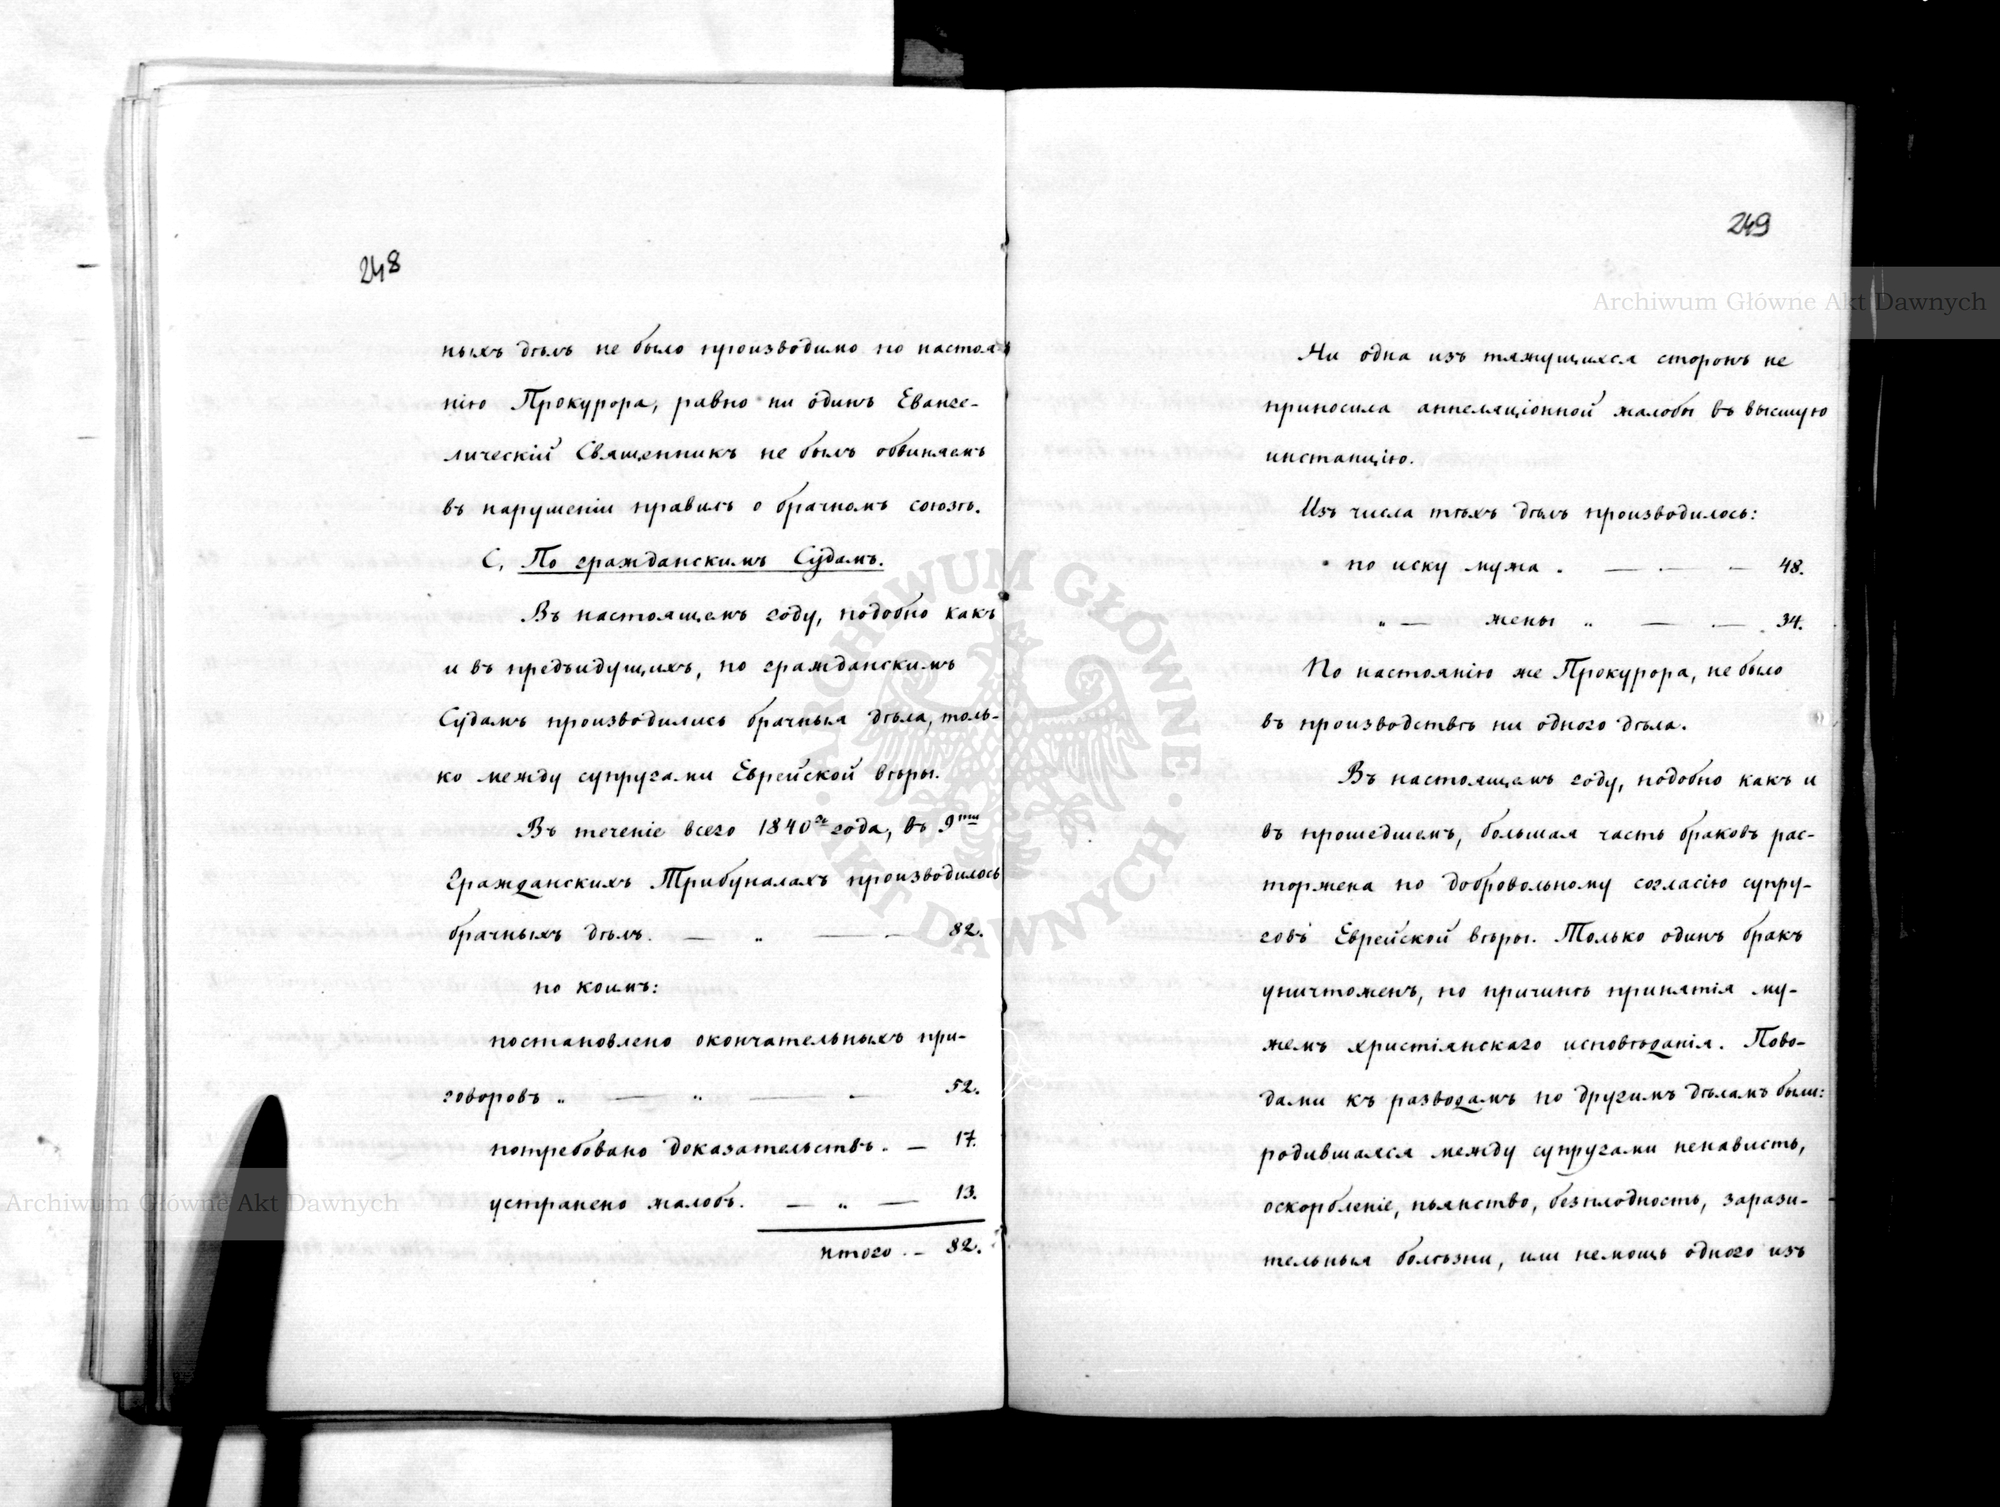 248
ныхъ дѣлъ не было производимо по настоя
нію Прокурора, равно ни одинъ Еванге-
лическій Священникъ не былъ обвиняемъ
въ нарушеніи правилъ о брачномъ союзѣ.
С, По гражданскимъ Судамъ.
Въ настоящемъ году, подобно какъ
и въ предъидущихъ, по гражданскимъ
Судамъ производились брачныя дѣла, толь-
ко между супругами Еврейской вѣры.
Въ теченіе всего 1840го года, въ 9ти
Гражданскихъ Трибуналахъ производилось
брачныхъ дѣлъ. — „ — — 82.
по коимъ:
постановлено окончательныхъ при-
говоровъ „ — „ — — 52.
потребовано доказательствъ. — 17.
устранено жалобъ. — „ — 13.
итого — 82.
249
Ни одна изъ тяжущихся сторонъ не
приносила аппеляціонной жалобы въ высшую
инстанцію.
Изъ числа тѣхъ дѣлъ производилось:
по иску мужа . — — — 48.
„ — жены „ — — 34.
По настоянію же Прокурора, не было
въ производствѣ ни одного дѣла.
Въ настоящемъ году, подобно какъ и
въ прошедшемъ, большая часть браковъ рас-
торжена по добровольному согласію супру-
говъ Еврейской вѣры. Только одинъ бракъ
уничтоженъ, по причинѣ принятія му-
жемъ христіянскаго исповѣданія. Пово-
дами къ разводамъ по другимъ дѣламъ были:
родившаяся между супругами ненависть,
оскорбленіе, пьянство, безплодность, зарази-
тельныя болѣзни, или немощь одного изъ
Archiwum Główne Akt Dawnych
Archiwum Główne Akt Dawnych
ARCHIWUM GŁÓWNE · AKT DAWNYCH ·